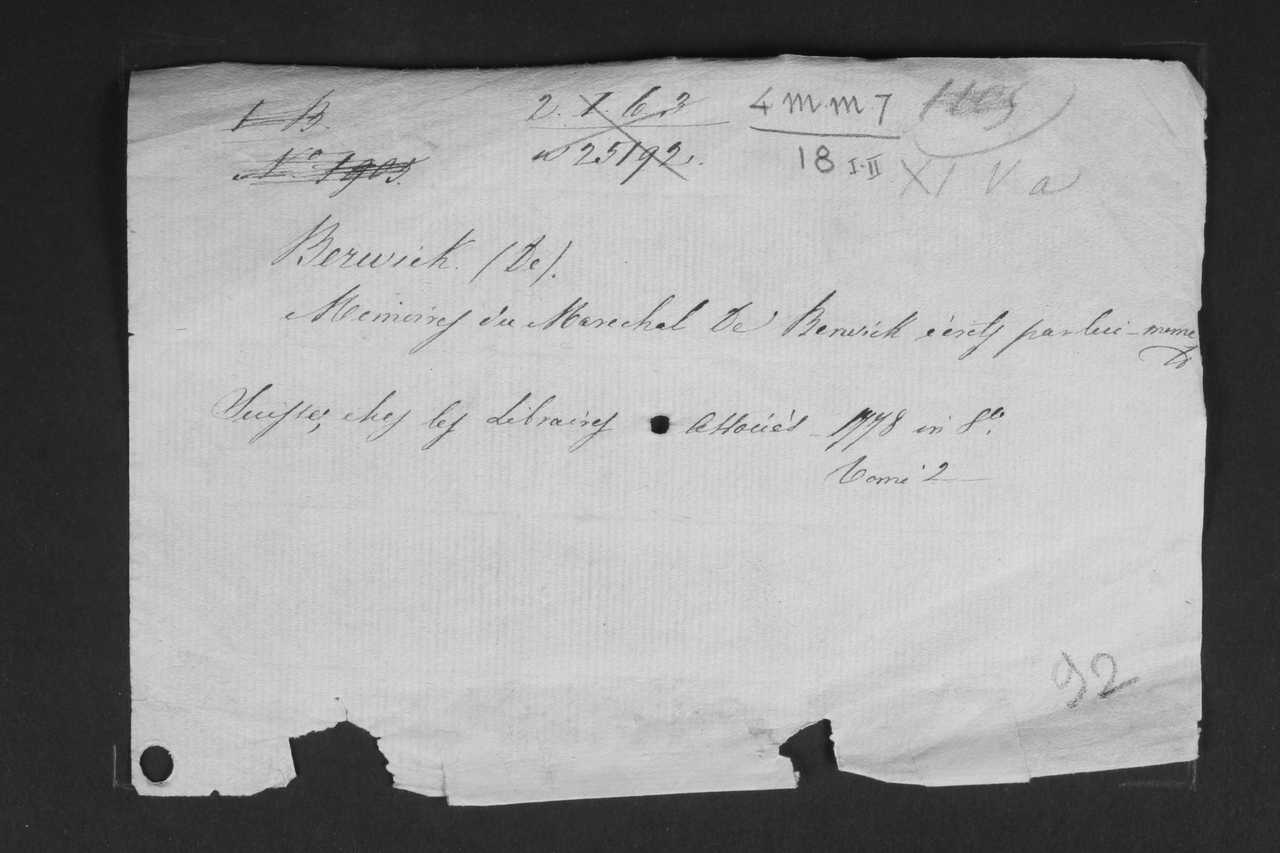 1 B. 2. I. 63 4 m.m 7
No 1905. no 25192. 18 I-II XI V a
Berwick. (De).
Memoires du Marechal De Berwick écrits par lui-meme
Suisse, chez les Libraires Associés - 1778 in 8º.
Tome 2
92